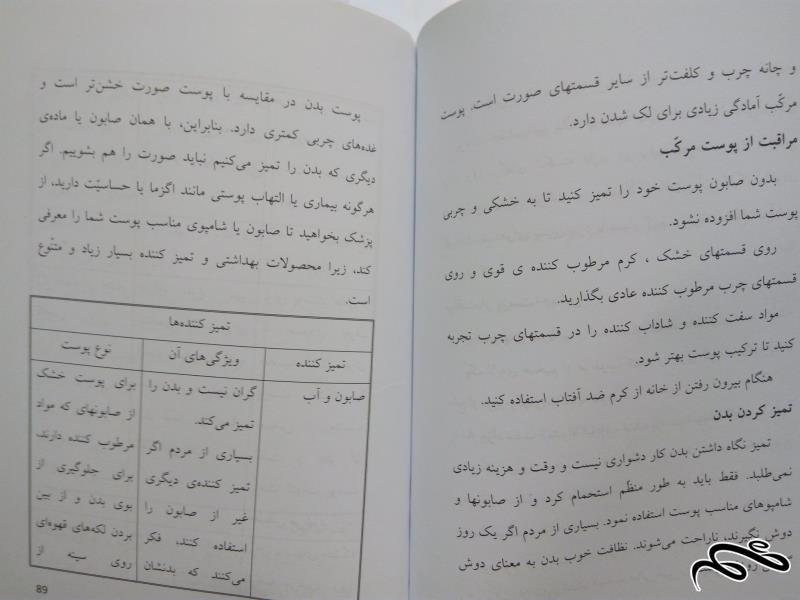 و چانه چرب و کلفت‌تر از سایر قسمتهای صورت است. پوست
مرکّب آمادگی زیادی برای لک شدن دارد.
مراقبت از پوست مرکّب
بدون صابون پوست خود را تمیز کنید تا به خشکی و چربی
پوست شما افزوده نشود.
روی قسمتهای خشک ، کرم مرطوب کننده ی قوی و روی
قسمتهای چرب مرطوب کننده عادی بگذارید.
مواد سفت کننده و شاداب کننده را در قسمتهای چرب تجربه
کنید تا ترکیب پوست بهتر شود.
هنگام بیرون رفتن از خانه از کرم ضد آفتاب استفاده کنید.
تمیز کردن بدن
تمیز نگاه داشتن بدن کار دشواری نیست و وقت و هزینه زیادی
نمی‌طلبد. فقط باید به طور منظّم استحمام کرد و از صابونها و
شامپوهای مناسب پوست استفاده نمود. بسیاری از مردم اگر یک روز
دوش نگیرند، ناراحت می‌شوند. نظافت خوب بدن به معنای دوش
پوست بدن در مقایسه با پوست صورت خشن‌تر است و
غده‌های چربی کمتری دارد. بنابراین، با همان صابون یا ماده‌ی
دیگری که بدن را تمیز می‌کنیم نباید صورت را هم بشوییم. اگر
هرگونه بیماری یا التهاب پوستی مانند اگزما یا حساسیّت دارید، از
پزشک بخواهید تا صابون یا شامپوی مناسب پوست شما را معرفی
کند، زیرا محصولات بهداشتی و تمیز کننده بسیار زیاد و متنّوع
است.
تمیز کننده‌ها
تمیز کننده ویژگی‌های آن نوع پوست
صابون و آب گران نیست و بدن را برای پوست خشک
تمیز می‌کند. از صابونهای که مواد
بسیاری از مردم اگر مرطوب کننده دارند،
تمیز کننده‌ی دیگری برای جلوگیری از
غیر از صابون را بوی بدن و از بین
استفاده کنند، فکر بردن لکه‌های قهوه‌ای
می‌کنند که بدنشان روی سینه از
89